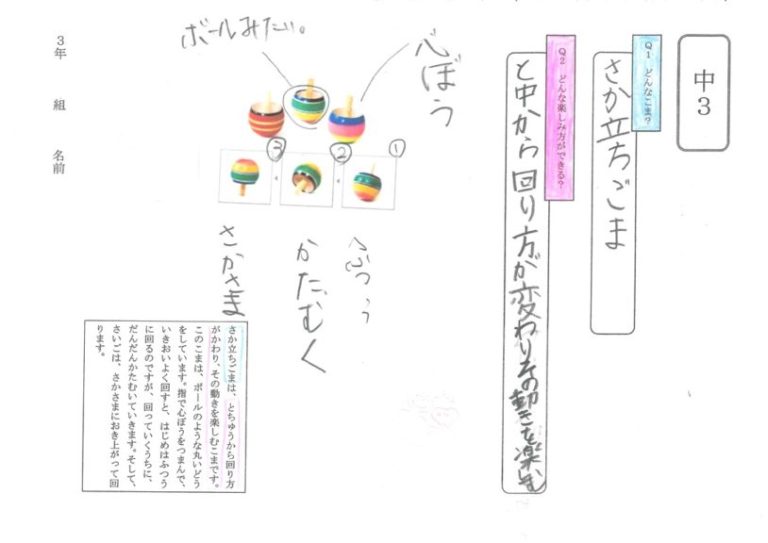 中3
Q1 どんなこま?
さか立ちごま
Q2 どんな楽しみ方ができる?
と中から回り方が変わりその動きを楽しむ
心ぼう
ボールみたい。
①
②
③
ふつう
かたむく
さかさま
さか立ちごまは、とちゅうから回り方
がかわり、その動きを楽しむこまです。
このこまは、ボールのような丸いどう
をしています。指で心ぼうをつまんで、
いきおいよく回すと、はじめはふつう
に回るのですが、回っていくうちに、
だんだんかたむいていきます。そして、
さいごは、さかさまにおき上がって回
ります。
3年 組 名前